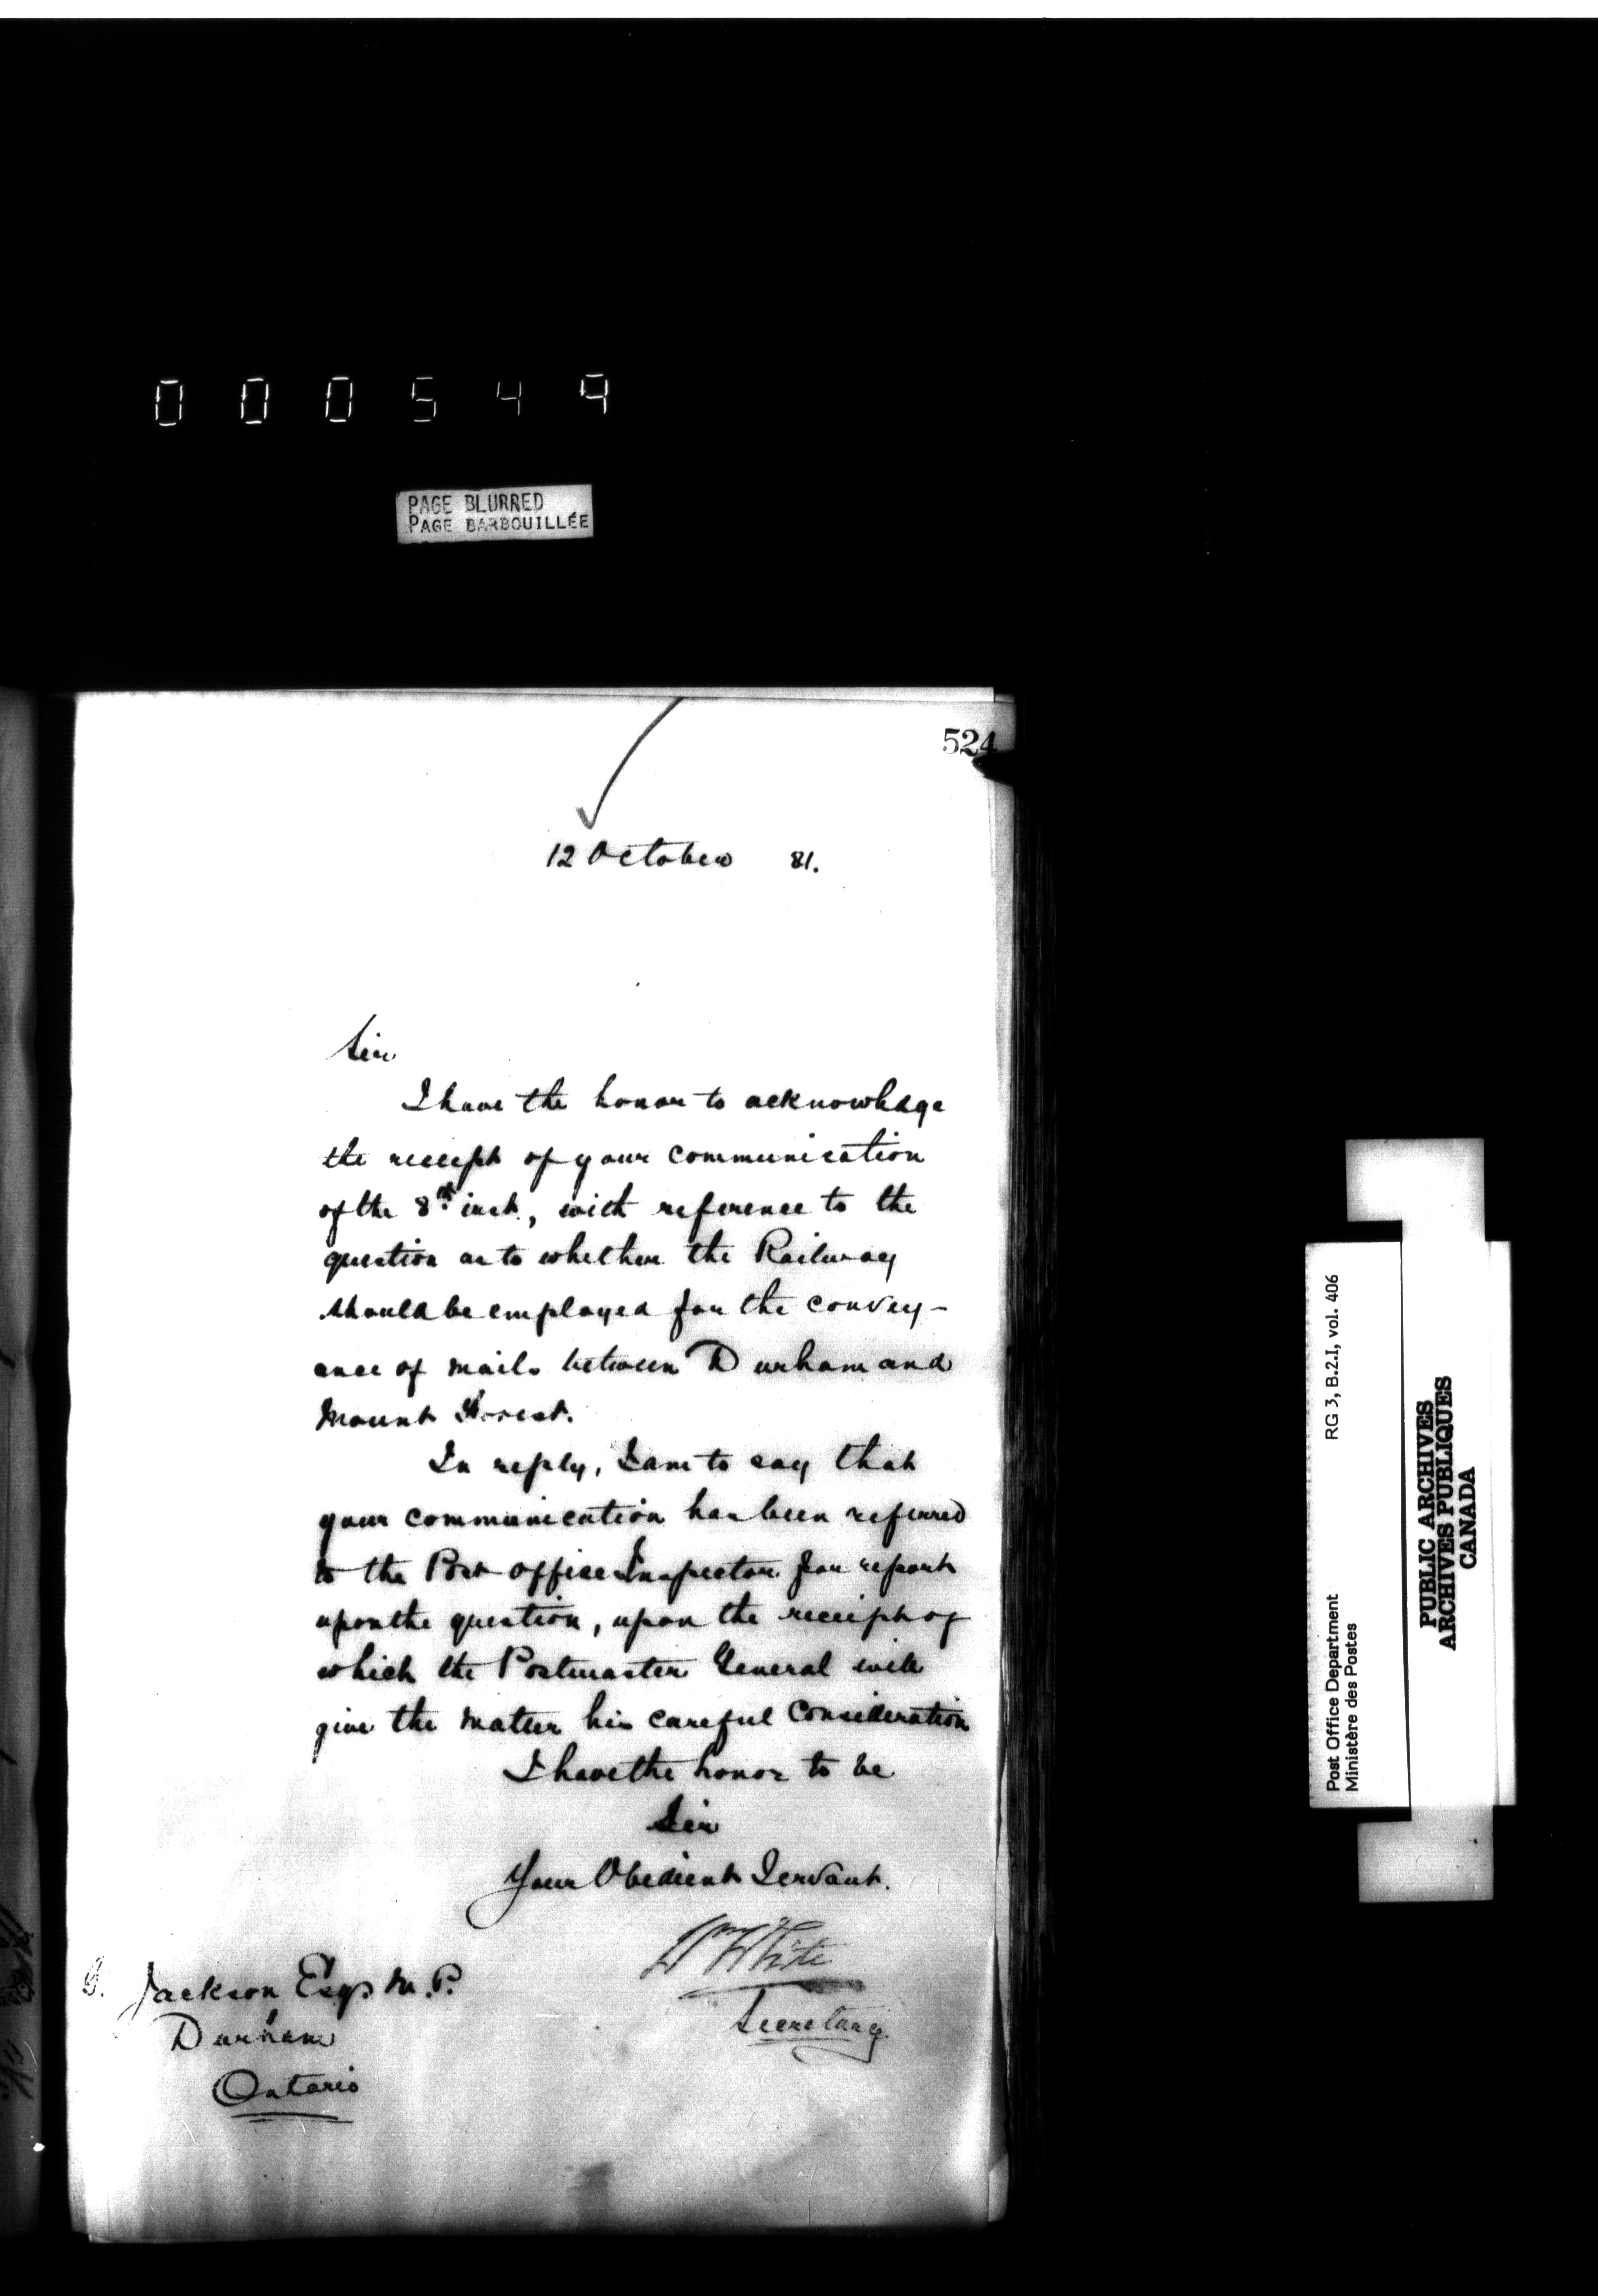 000549
PAGE BLURRED
PAGE BARBOUILLÉE
524
12 October 81.
Sir
I have the honor to acknowledge
the receipt of your communication
of the 8th inst., with reference to the
question as to whether the Railway
should be employed for the convey-
ance of mails between Durham and
Mount Forest.
In reply, I am to say that
your communication has been referred
to the Post Office Inspector for report
upon the question, upon the receipt of
which the Postmaster General will
give the matter his careful consideration
I have the honor to be
Sir
Your Obedient Servant.
Wm White
Secretary
Jackson Esq. M.P.
Durham
Ontario
RG 3, B.2.I, vol. 406
Post Office Department
Ministère des Postes
PUBLIC ARCHIVES
ARCHIVES PUBLIQUES
CANADA